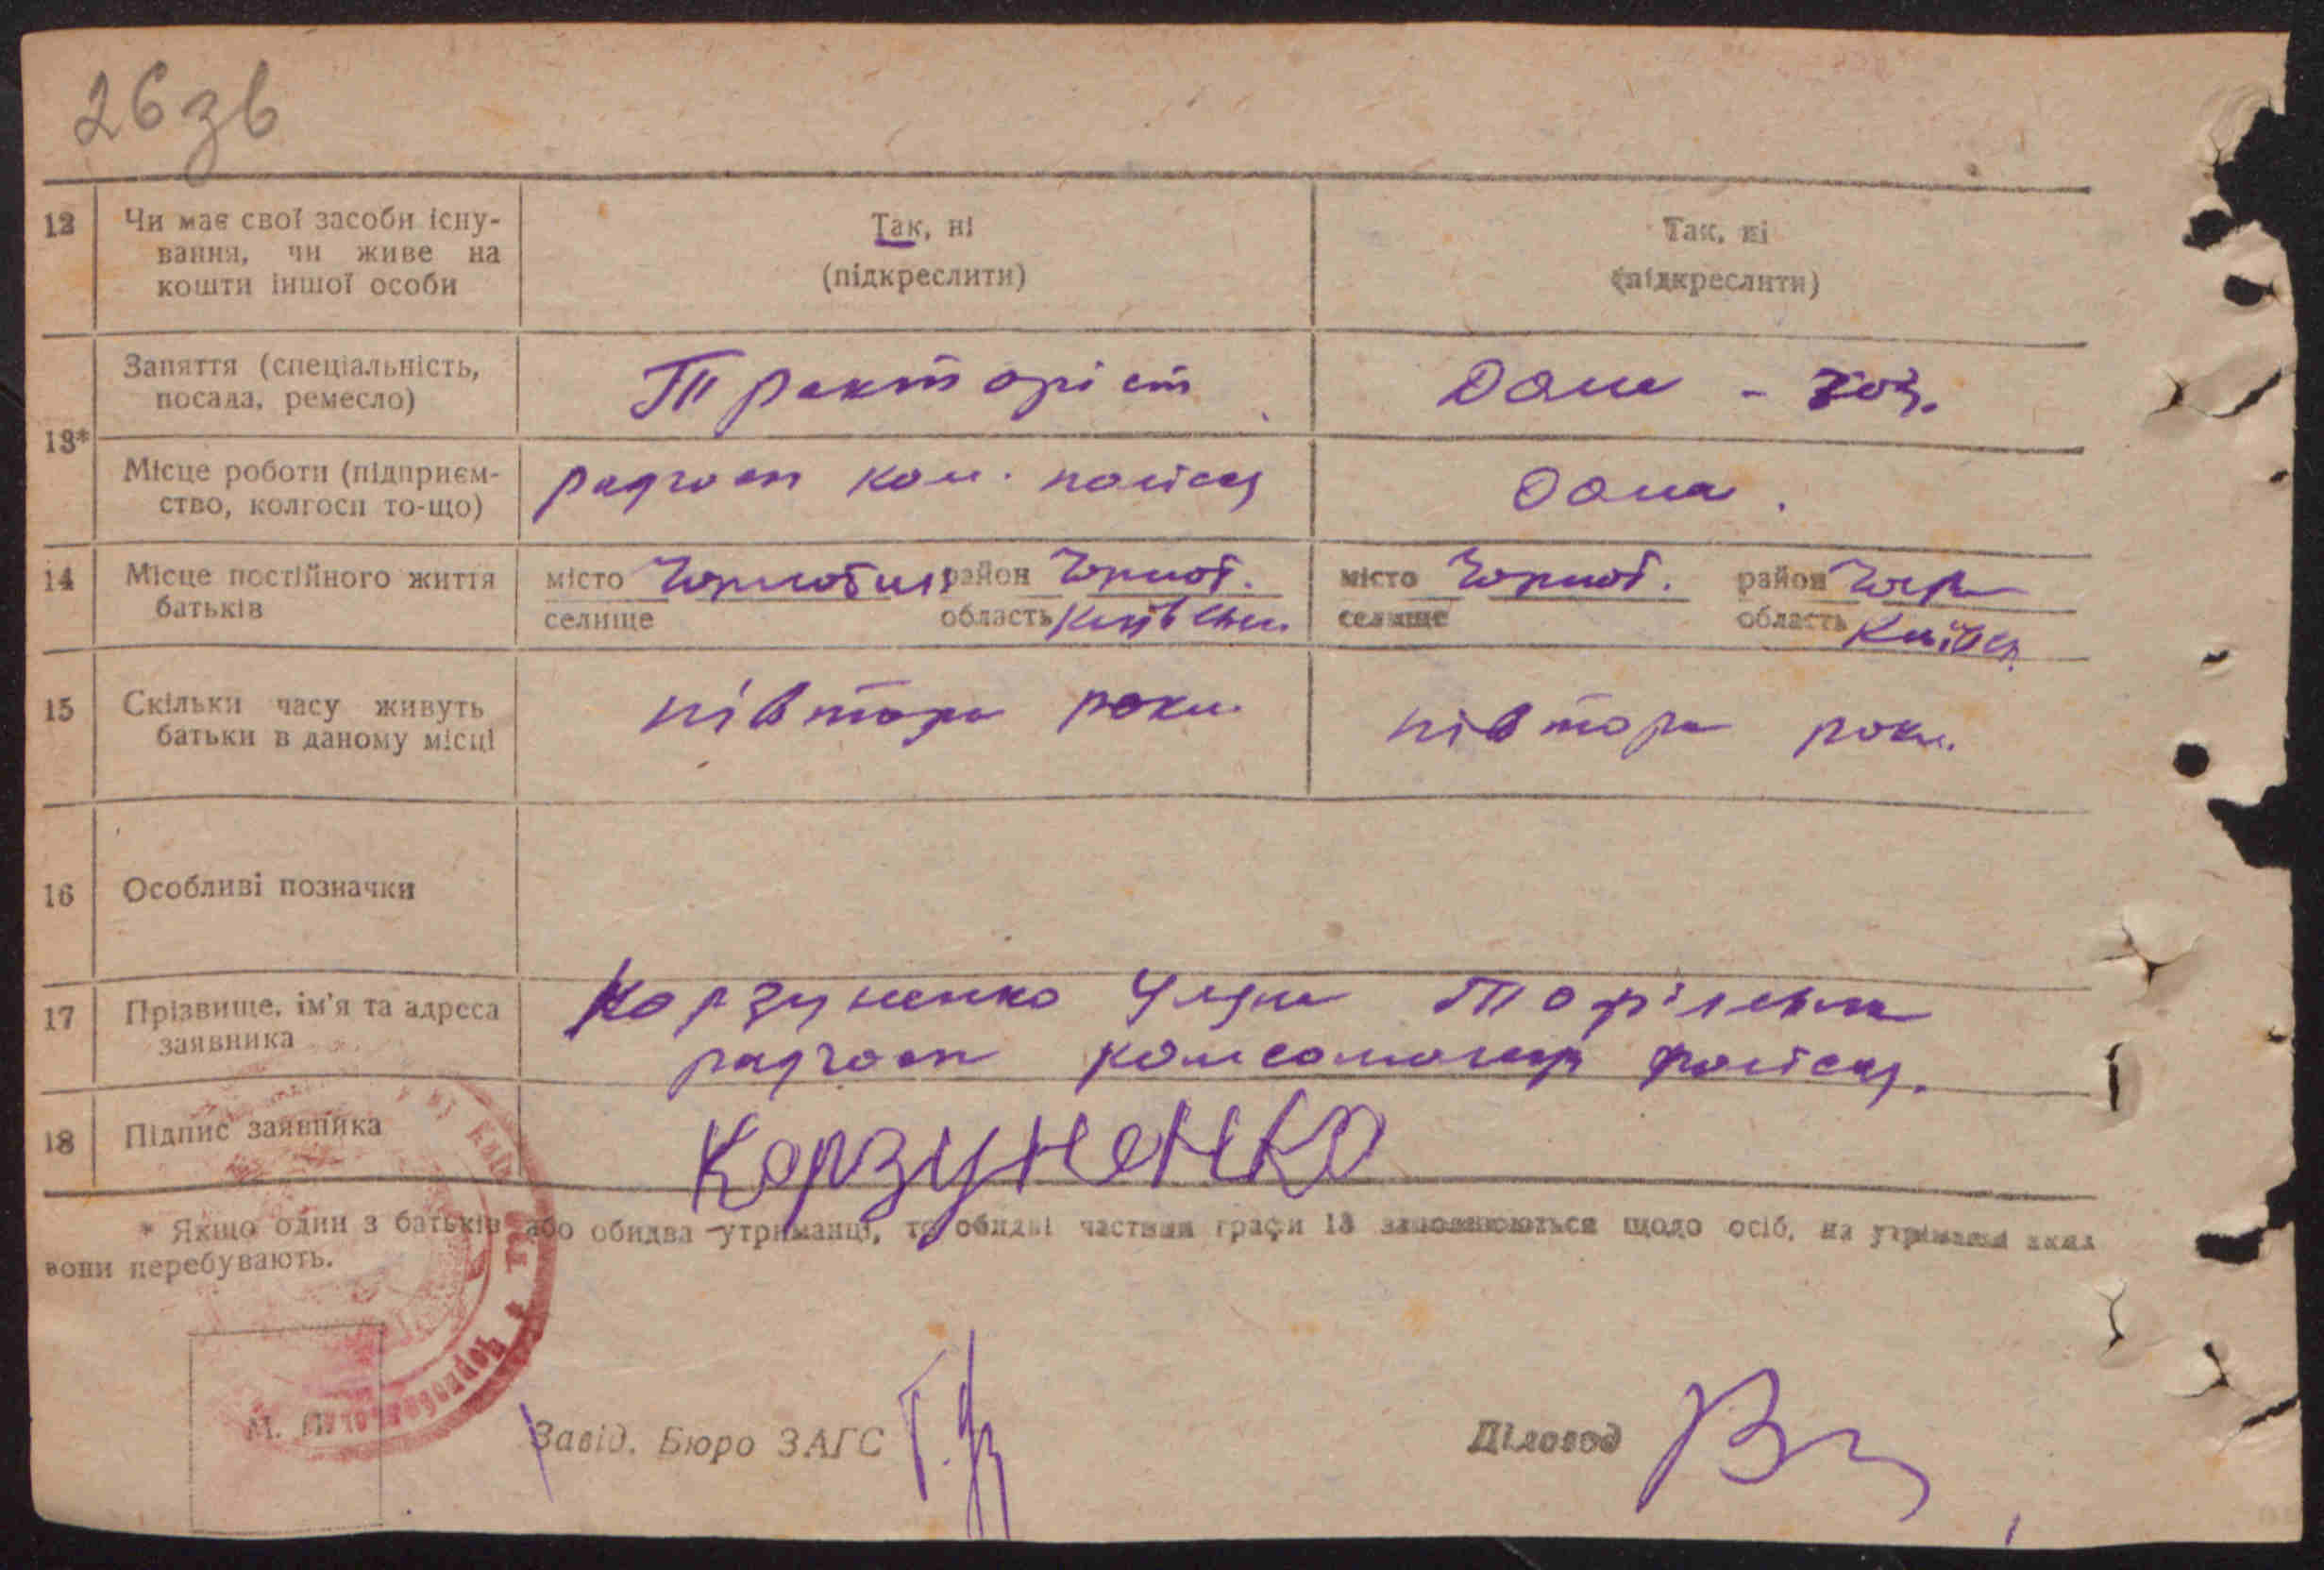 26 зв
12 Чи має свої засоби існу-
вання, чи живе на
кошти іншої особи
Так, ні
(підкреслити)
Так, ні
(підкреслити)
13*
Заняття (спеціальність,
посада, ремесло)
Тракторіст
Дома - хоз.
Місце роботи (підприєм-
ство, колгосп то-що)
радгосп ком. поліся
Дома.
14 Місце постійного життя
батьків
місто Чорнобиль район Чорноб.
селище область Київськ.
місто Чорноб. район Чорн
селище область Київск.
15 Скільки часу живуть
батьки в даному місці
півтора роки
півтора роки.
16 Особливі позначки
17 Прізвище, ім'я та адреса
заявника
Корзуненко
радгосп поліся.
18 Підпис заявника
Корзуненко
* Якщо один з батьків або обидва утриманці, то обидві частини графи 13 заповнюються щодо осіб, на утриманні яких
вони перебувають.
М. П.
Завід. Бюро ЗАГС
Діловод